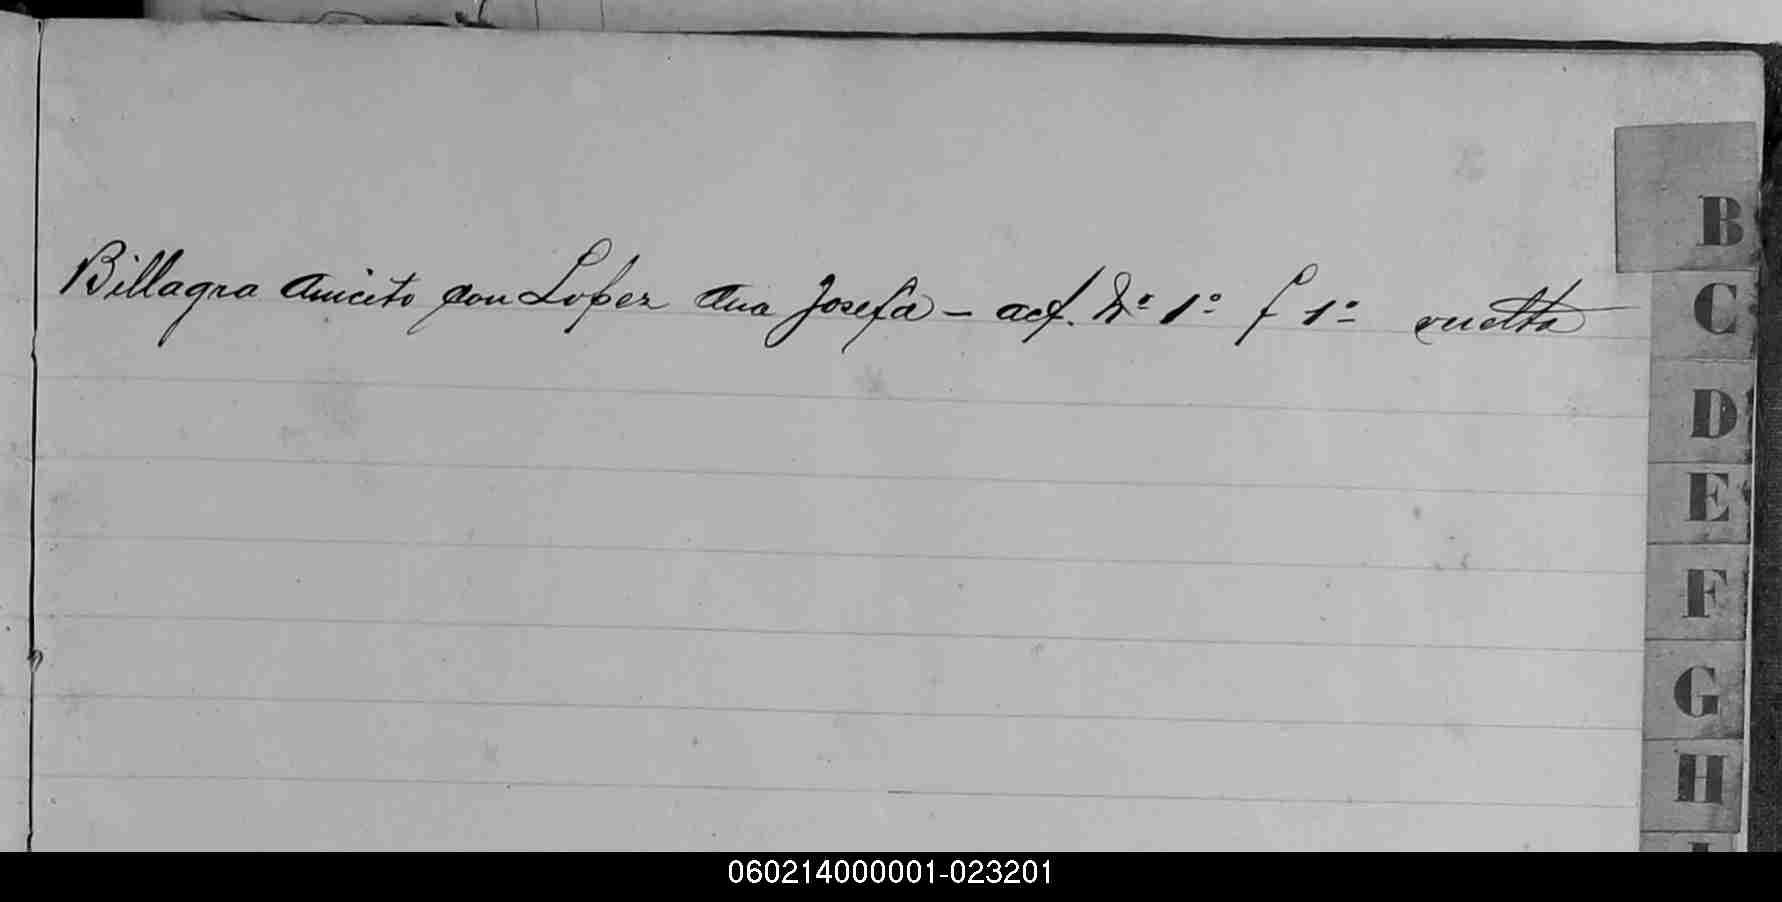 Billagra Aniceto con Lopez Ana Josefa - act. Nº 1º f 1º vuelta
B
C
D
E
F
G
H
060214000001-023201